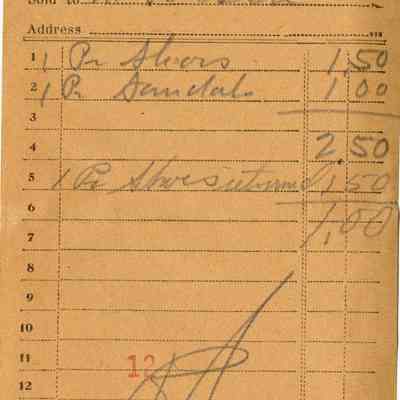 Sold to
Address
1 1 Pr Shoes 1,50
2 1 Pr Sandals 1 00
3
4 2,50
5 1 Pr Shoes returned 1 50
6
7 1,00
8
9
10
11 12
12